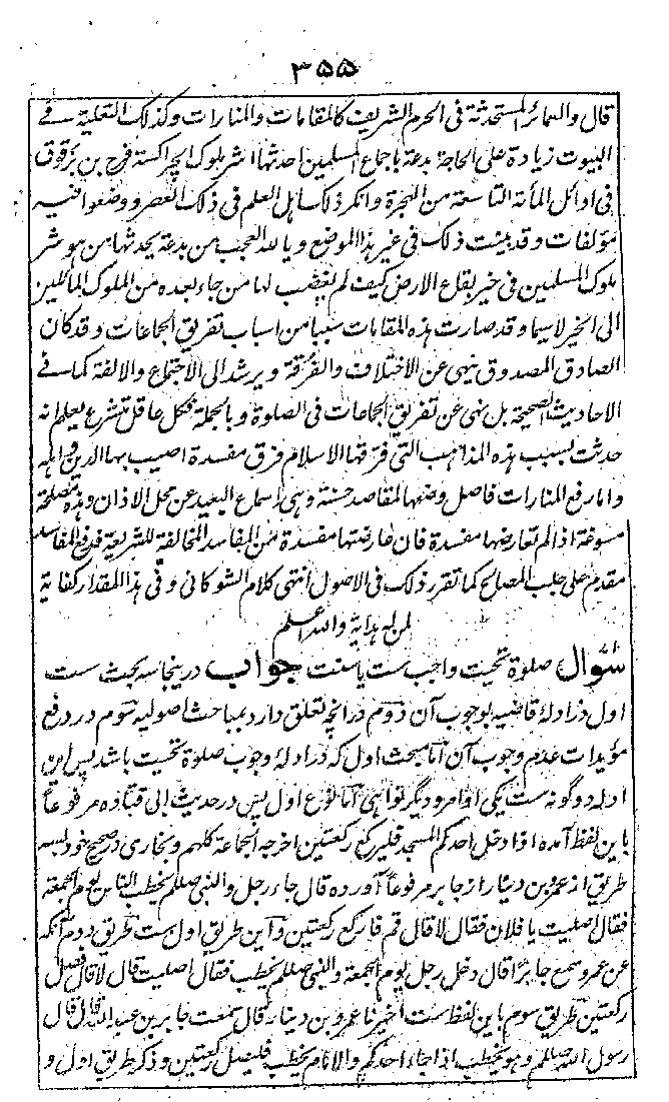 ۳۵۵
قال والعمائر المستحدثة فی الحرم الشریف کالمقامات والمنارات وکذلک التعلیة فے
البیوت زیادة علی الحاجة بدعة باجماع المسلمین احدثها اشر ملوک الچراکسة فرج بن برقوق
فی اوائل المأة التاسعة من الهجرة وانکر ذلک اهل العلم فی ذلک العصر ووضعوا فیه
مؤلفات وقد بینت ذلک فی غیر هذا الموضع ویا لله العجب من بدعة یحدثها من هو شر
ملوک المسلمین فی خیر بقاع الارض کیف لم یغضب لها من جاء بعده من الملوک المائلین
الی الخیر لا سیما وقد صارت هذه المقامات سببا من اسباب تفریق الجماعات وقد کان
الصادق المصدوق ینهی عن الاختلاف والفرقة ویرشد الی الاجتماع والالفة کما فے
الاحادیث الصحیحة بل نهی عن تفریق الجماعات فی الصلوة وبالجملة فکل عاقل متشرع یعلم انه
حدثت بسبب هذه المذاهب التی فرقها الاسلام فرق مفسدة اصیب بها الدین واهله
واما رفع المنارات فاصل وضعها لمقاصد حسنة وهی اسماع البعید عن محل الاذان وهذه مصلحة
مسوغة اذا لم تعارضها مفسدة فان عارضتها مفسدة من المفاسد المخالفة للشریعة فدفع المفاسد
مقدم علی جلب المصالح کما تقرر ذلک فی الاصول انتهی کلام الشوکانی وفی هذا المقدار کفایة
لمن له هدایة والله اعلم
سوال صلوة تحیت واجب ست یا سنت جواب درینجا سه بحث ست
اول در ادلهٔ قاضیه بوجوب آن دوم در انچه تعلق دارد بمباحث اصولیه سوم در دفع
مؤیدات عدم وجوب آن اما بحث اول که در ادلهٔ وجوب صلوة تحیت باشد پس این
ادله دو گونه ست یکی اوامر و دیگر نواهی اما نوع اول پس در حدیث ابی قتاده مرفوعاً
باین لفظ آمده اذا دخل احدکم المسجد فلیرکع رکعتین اخرجه الجماعة کلهم و بخاری در صحیح خود بسه
طریق از عمرو بن دینار از جابر مرفوعاً آورده قال جاء رجل والنبی صلعم یخطب الناس یوم الجمعة
فقال اصلیت یا فلان فقال لا قال قم فارکع رکعتین و این طریق اول ست طریق دوم آنکه
عن عمرو سمع جابرا قال دخل رجل یوم الجمعة والنبی صلعم یخطب فقال اصلیت قال لا قال فصل
رکعتین طریق سوم باین لفظ ست اخبرنا عمرو بن دینار قال سمعت جابر بن عبد الله قال قال
رسول الله صلعم وهو یخطب اذا جاء احدکم والامام یخطب فلیصل رکعتین و ذکر طریق اول و